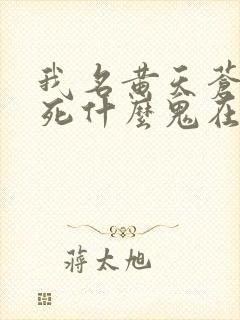 我名黄天蒼
死什麼鬼在
蔣太旭